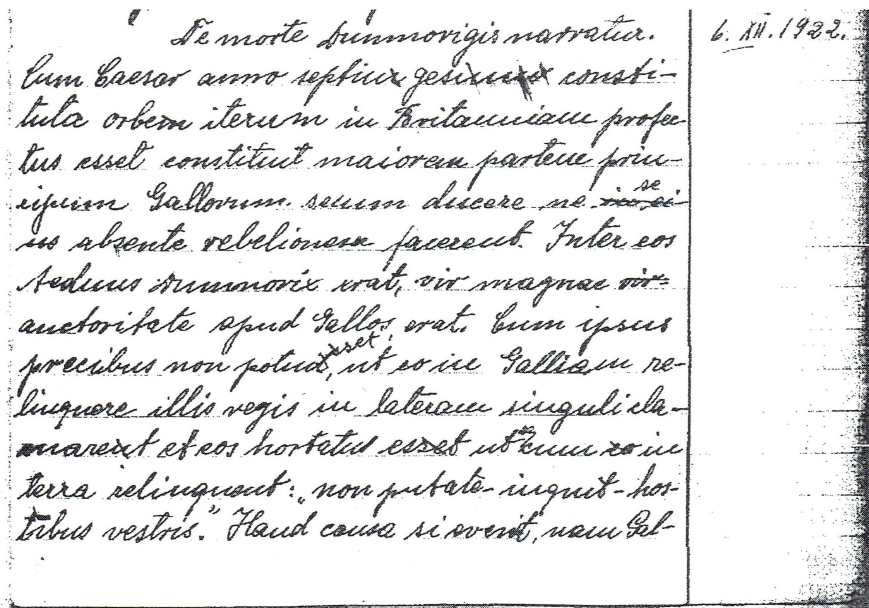 De morte Dumnorigis narratur.
6. XII. 1922.
Cum Caesar anno septin gesimus consti-
tuta orbem iterum in Britanniam profec
tus esset constituit maiorem partem prin-
cipum Gallorum secum ducere ne se ei
us absente rebelionem facerent. Inter eos
Aeduus Dumnorix erat, vir magnae vir-
auctoritate apud Gallos, erat. Cum ipsus
precibus non potuisset, ut eo in Galliam re-
linquere illis regis in lateram singuli cla-
marent et eos hortatus esset ut cum eo in
terra relinquent: „non putate - inquit - hos-
tibus vestris." Haud causa si evenit, nam Gal-